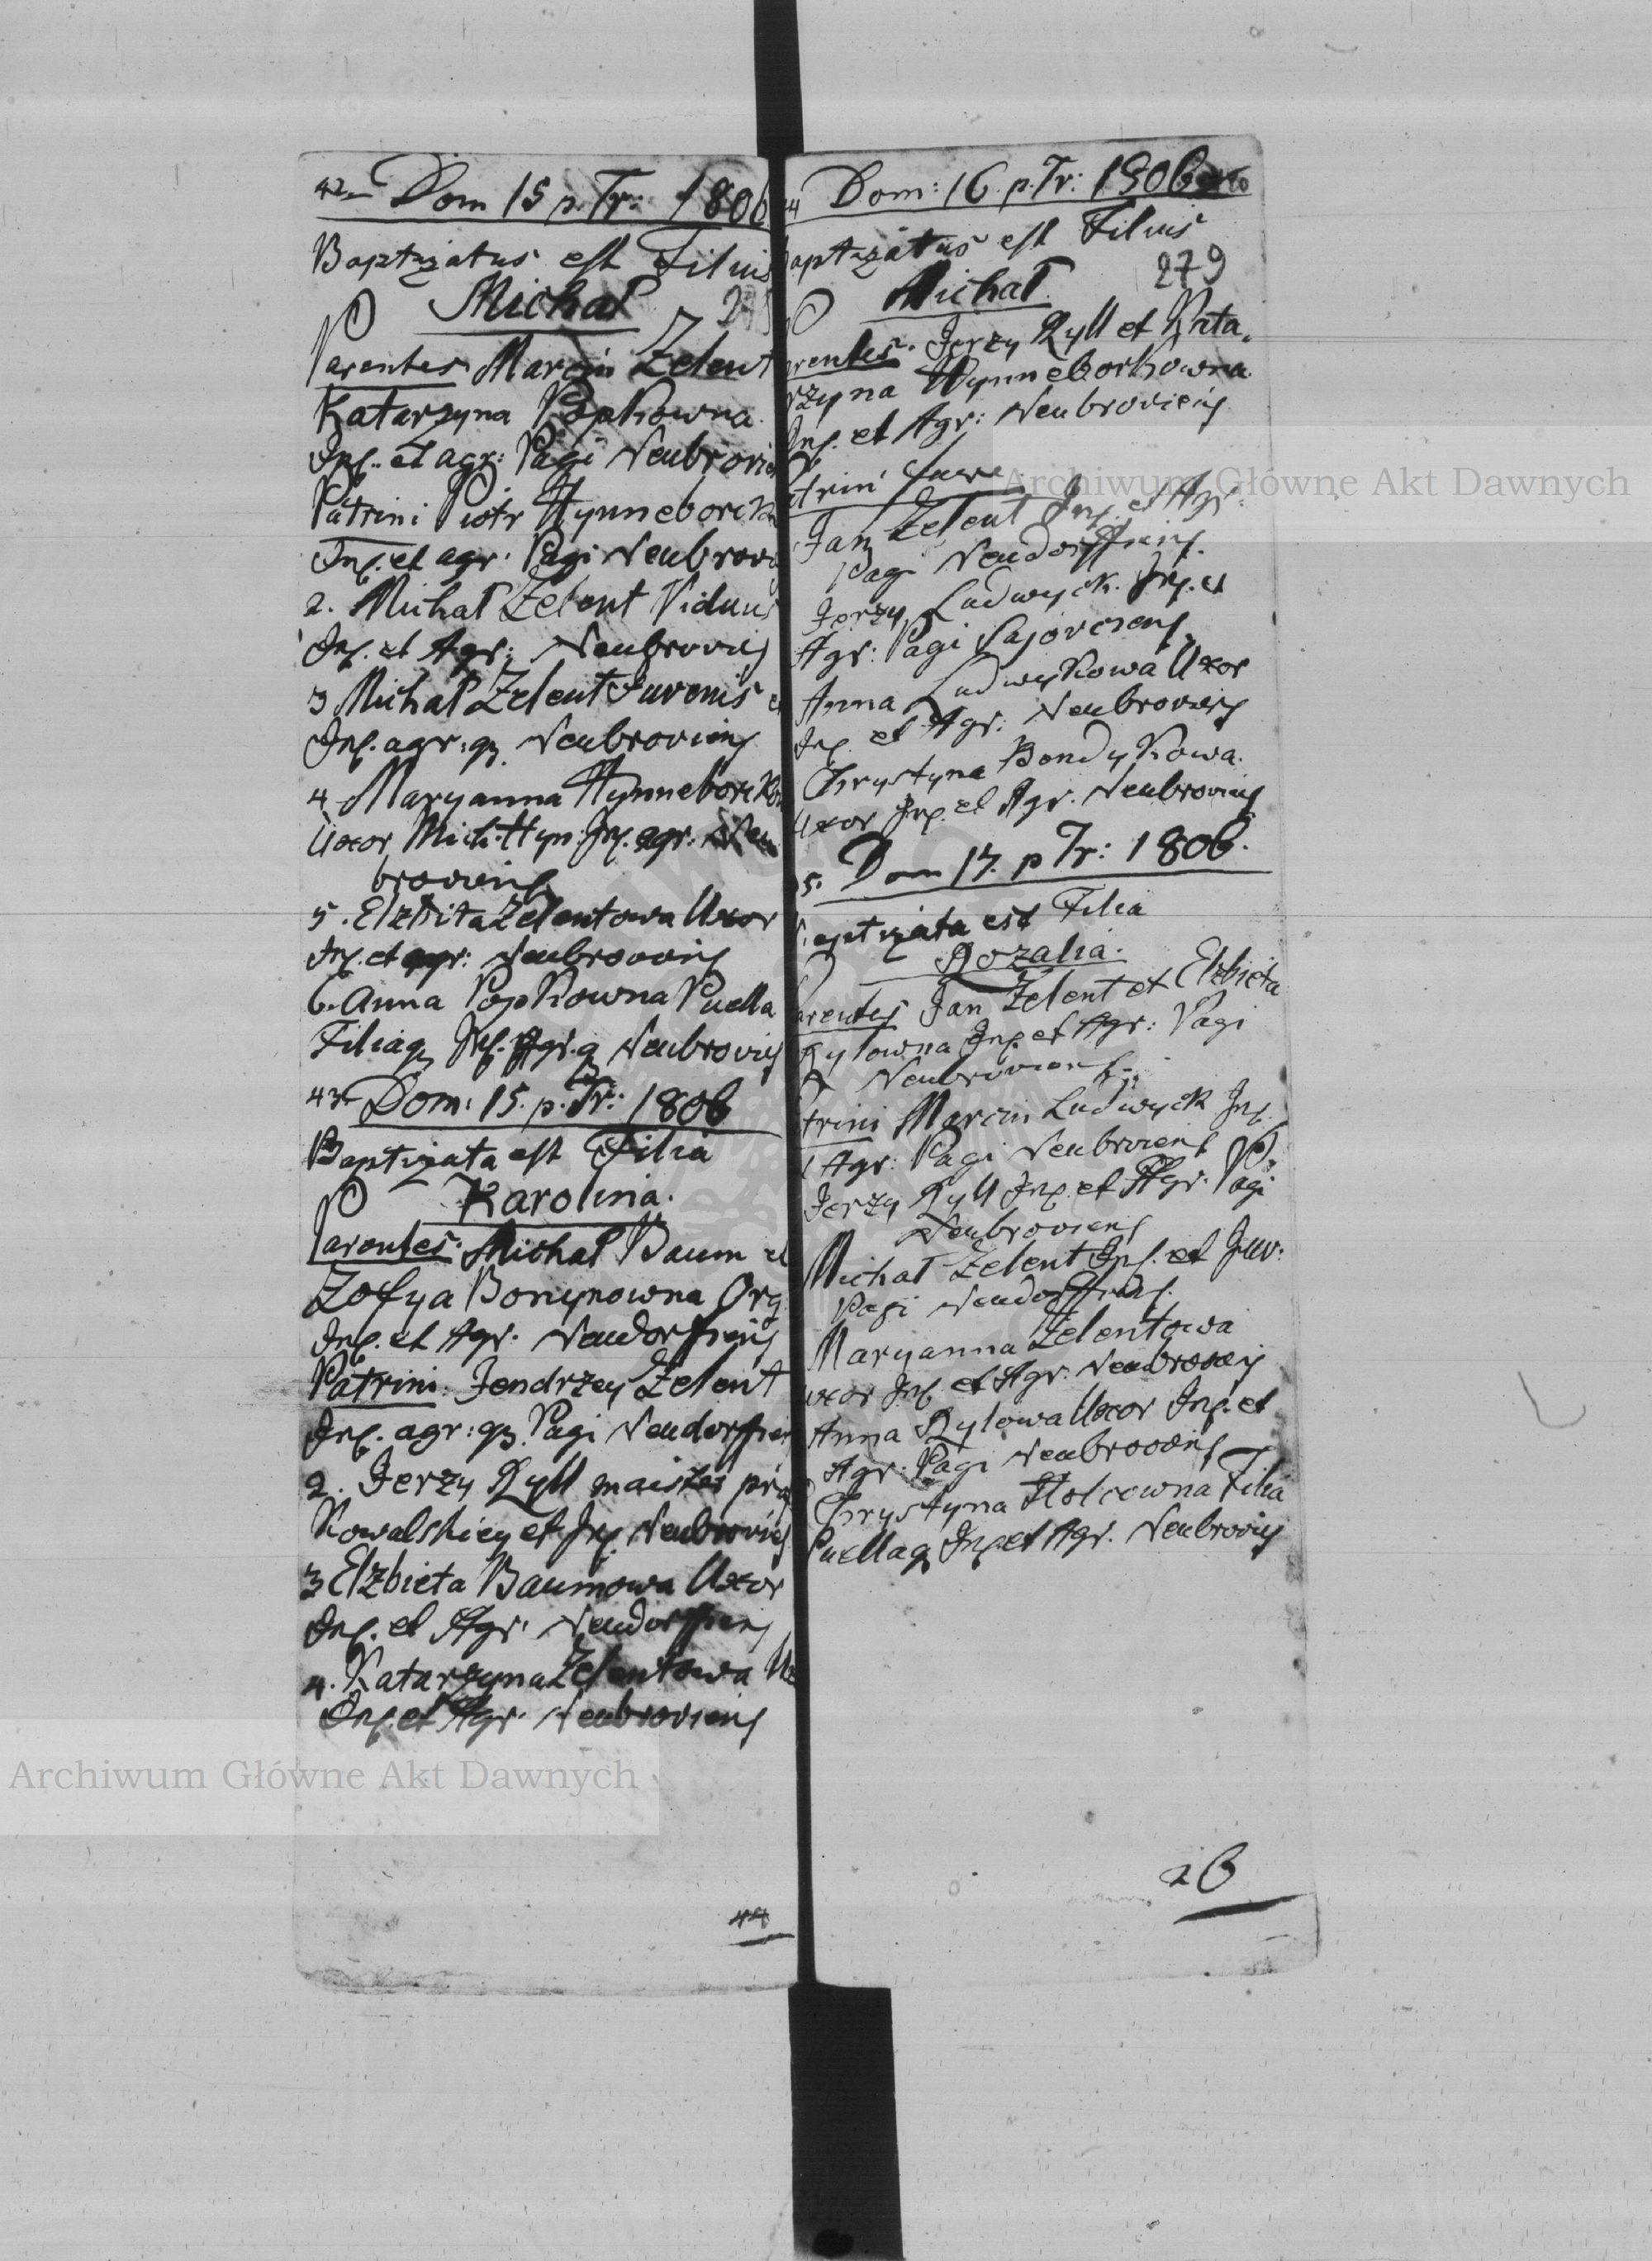 42 Dom 15 p. Tr: 1806
Baptizatus est Filius
Michał
Parentes Marcin Zelent
Katarzyna Popkowna
Inq. et agr: Pagi Neubrovien
Patrini Piotr Hynneborck
Inq. et agr. Pagi Neubrovi
2. Michał Zelent Viduus
Inq. et Agr: Neubroviens
3 Michał Zelent Juvenis et
Inq. agr: q3 Neubroviens
4 Maryanna Hynneborcko
Uxor Mich. Hyn. Inq. agr. Neu
broviens
5. Elzbita Zelentowa Uxor
Inq. et agr: Neubroviens
6. Anna Popkowna Puella
Filiaq Inq. Agr. q Neubroviens
43 Dom: 15. p. Tr: 1806
Baptizata est Filia
Karolina.
Parentes: Michał Baum et
Zofya Bonynowna Org.
Inq. et Agr. Neudorffiens
Patrini: Jendrzey Zelent
Inq. agr: q3. Pagi Neudorffien
2. Jerzy Ryll maister pro
Kowalskiey et Inq. Neubroviens
3 Elzbieta Baumowa Uxor
Inq. et Agr. Neudorffiens
4. Katarzyna Zelentowa Ux
Inq. et Agr. Neubroviens
44
44 Dom: 16. p. Tr: 1806
aptizatus est Filius
279
Michał
Parentes. Jerzy Ryll et Kata.
rzyna Hynneborkowna
Inq. et Agr: Neubroviens
trini
Jan Zelent Inq. et Agr:
Pagi Neudorffiens.
Jerzy Ludwyck. Inq. et
Agr: Pagi
Anna Ludwykowa Uxor
Inq. et Agr: Neubroviens
Chrystyna Bondykowa.
Uxor Inq. et Agr. Neubroviens
5. Dom 17. p Tr: 1806.
aptizata est Filia
Rozalia.
Parentes Jan Zelent et Elzbieta
Rylowna Inq. et Agr: Pagi
Neubroviens.
trini Marcin Ludwyck Inq.
Agr: Pagi Neubroviens
Jerzy Ryll Inq. et Agr. Pagi
Neubroviens
Michał Zelent Inq. et Juv:
Pagi Neudorffiens.
Maryanna Zelentowa
uxor Inq. et Agr: Neubroviens
Anna Rylowa Uxor Inq. et
Agr: Pagi Neubroviens
Chrystyna Holcowna Filia
Puellaq Inq. et Agr. Neubroviens
26
Archiwum Główne Akt Dawnych
Archiwum Główne Akt Dawnych